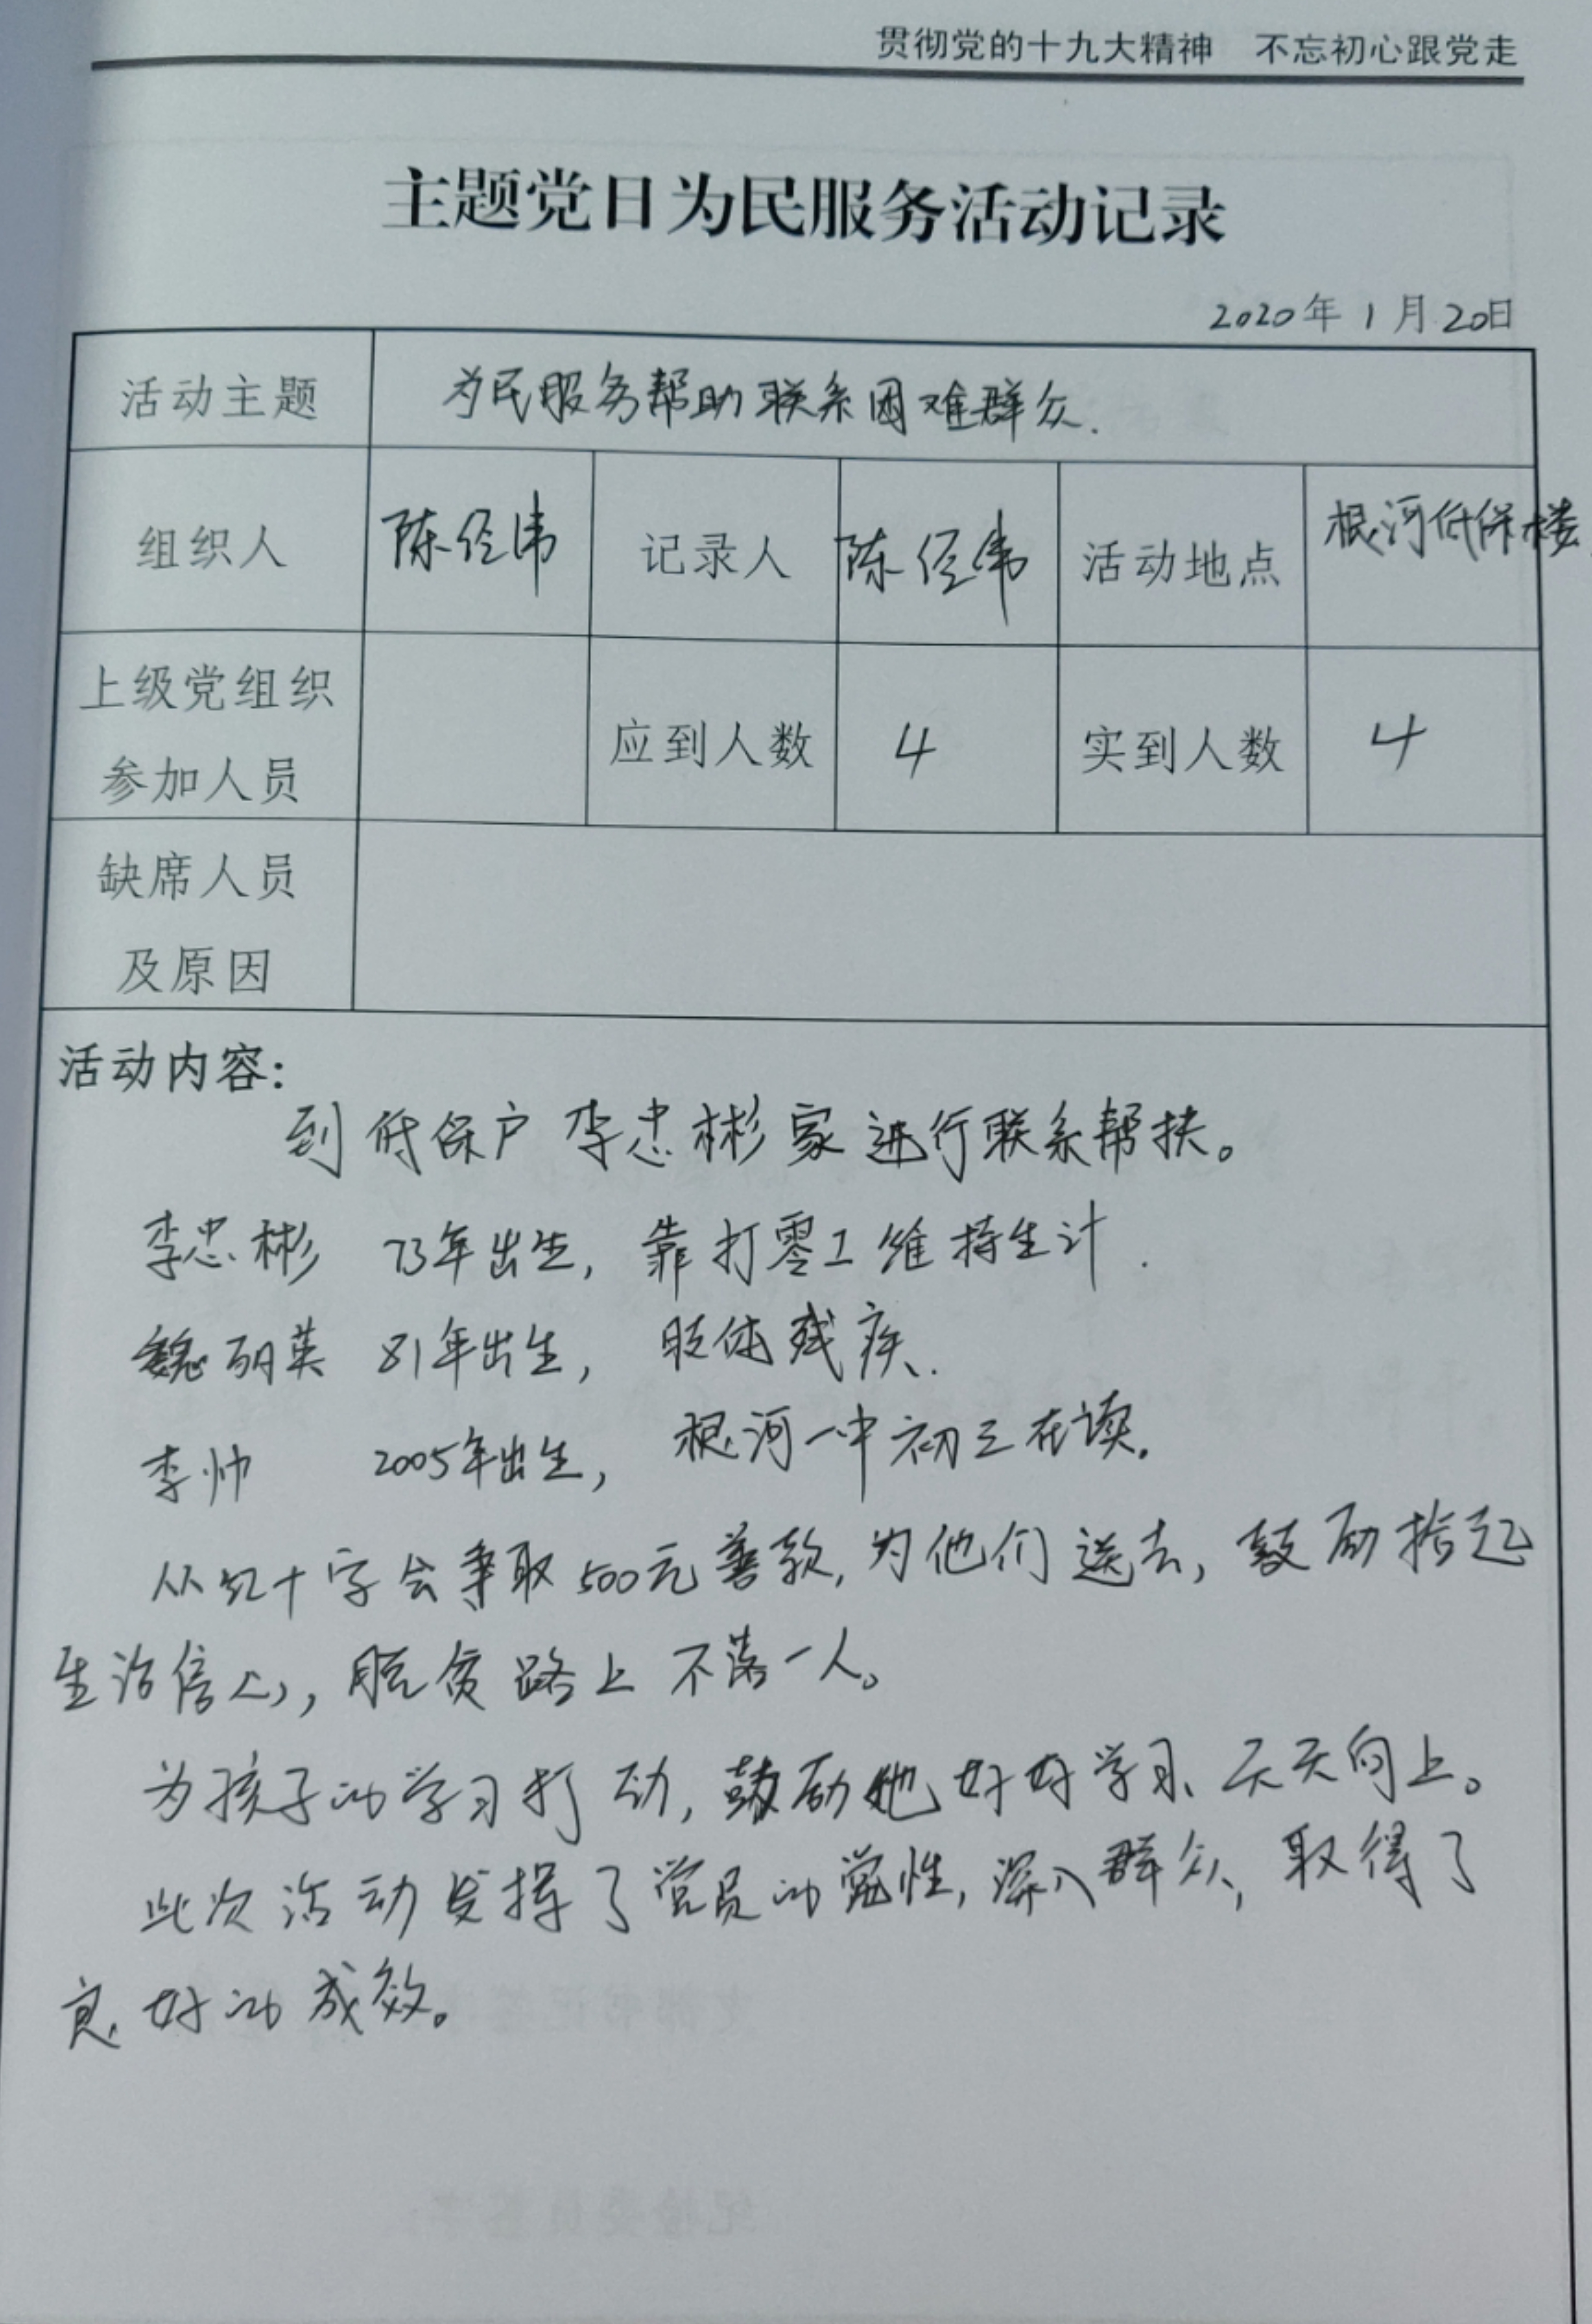 贯彻党的十九大精神 不忘初心跟党走
主题党日为民服务活动记录
2020年1月20日
活动主题 为民服务帮助联系困难群众.
组织人 陈经纬 记录人 陈经纬 活动地点 根河低保楼
上级党组织
参加人员 应到人数 4 实到人数 4
缺席人员
及原因
活动内容:
到低保户李忠彬家进行联系帮扶。
李忠彬 73年出生, 靠打零工维持生计.
魏丽英 81年出生, 肢体残疾.
李帅 2005年出生, 根河一中初三在读.
从红十字会争取500元善款,为他们送去,鼓励拾起
生活信心,脱贫路上不落一人。
为孩子的学习打动,鼓励他好好学习、天天向上。
此次活动发挥了党员的党性,深入群众,取得了
良好的成效。